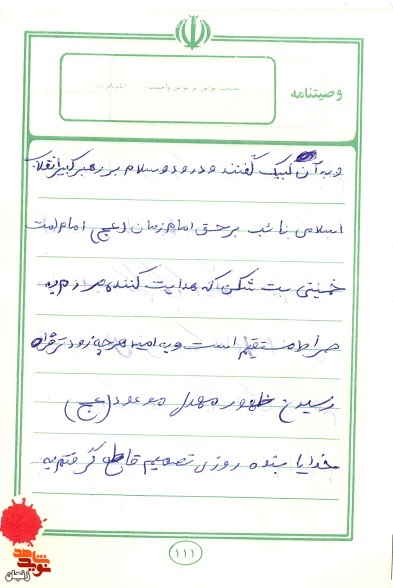 وصیتنامه
و به آن لبیک گفتند و درود و سلام بر رهبر کبیر انقلاب
اسلامی نائب برحق امام زمان (عج) امام امت
خمینی بت شکن که هدایت کننده مردم به
صراط مستقیم است و به امید هر چه زودتر فرا
رسیدن ظهور مهدی موعود (عج)
خدایا بنده روزی تصمیم قاطع گرفتم به
۱۱۱
نوید شاهد
زنجان